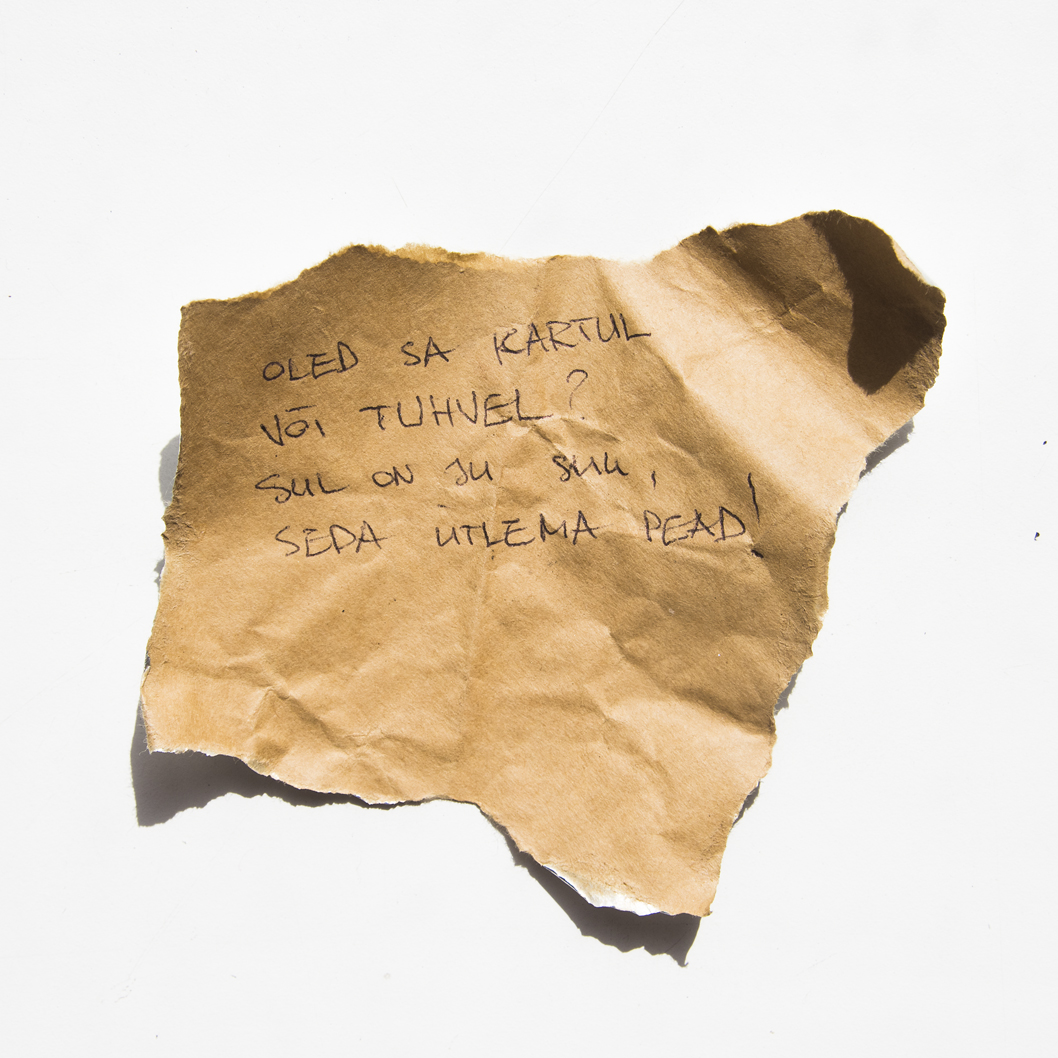 OLED SA KARTUL
VÕI TUHVEL?
SUL ON JU SUU,
SEDA ÜTLEMA PEAD!